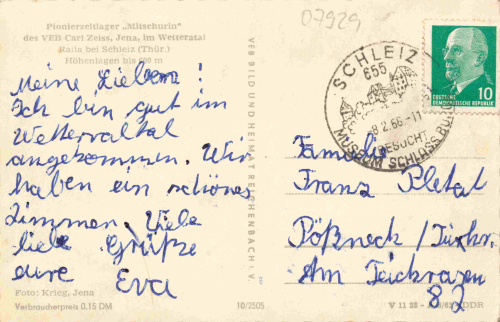 07929
Pionierzeltlager „Mitschurin"
des VEB Carl Zeiss, Jena, im Wettertal
Raila bei Schleiz (Thür.)
Höhenlagen bis 600 m
Meine Lieben!
Ich bin gut im
angekommen. Wir
haben ein schönes
Zimmen. Viele
liebe Grüße
eure Eva
Foto: Krieg, Jena
Verbraucherpreis 0.15 DM
VEB BILD UND HEIMAT REICHENBACH I. V.
10/2505
SCHLEIZ
655
8.2.66-11
BESUCHT
MUSEUM SCHLOSS
10
DEUTSCHE
DEMOKRATISCHE REPUBLIK
Familie
Franz Pletat
Pößneck /
Am Teichrasen
82
V 11 28
DDR